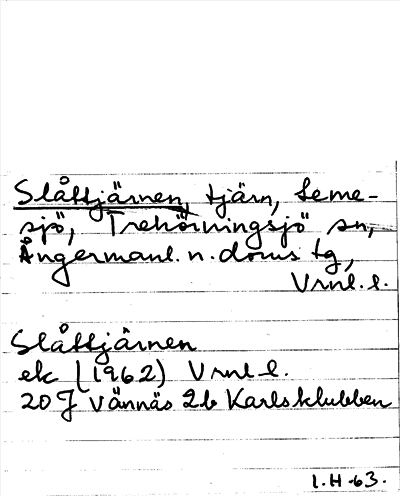 Slåttjärnen, tjärn, Leme-
sjö, Trehörningsjö sn,
Ångermanl. n. doms tg,
Vrnl. l.
Slåttjärnen
ek (1962) Vrnl l.
20 J Vännäs 2b Karlsklubben
1.H.63.